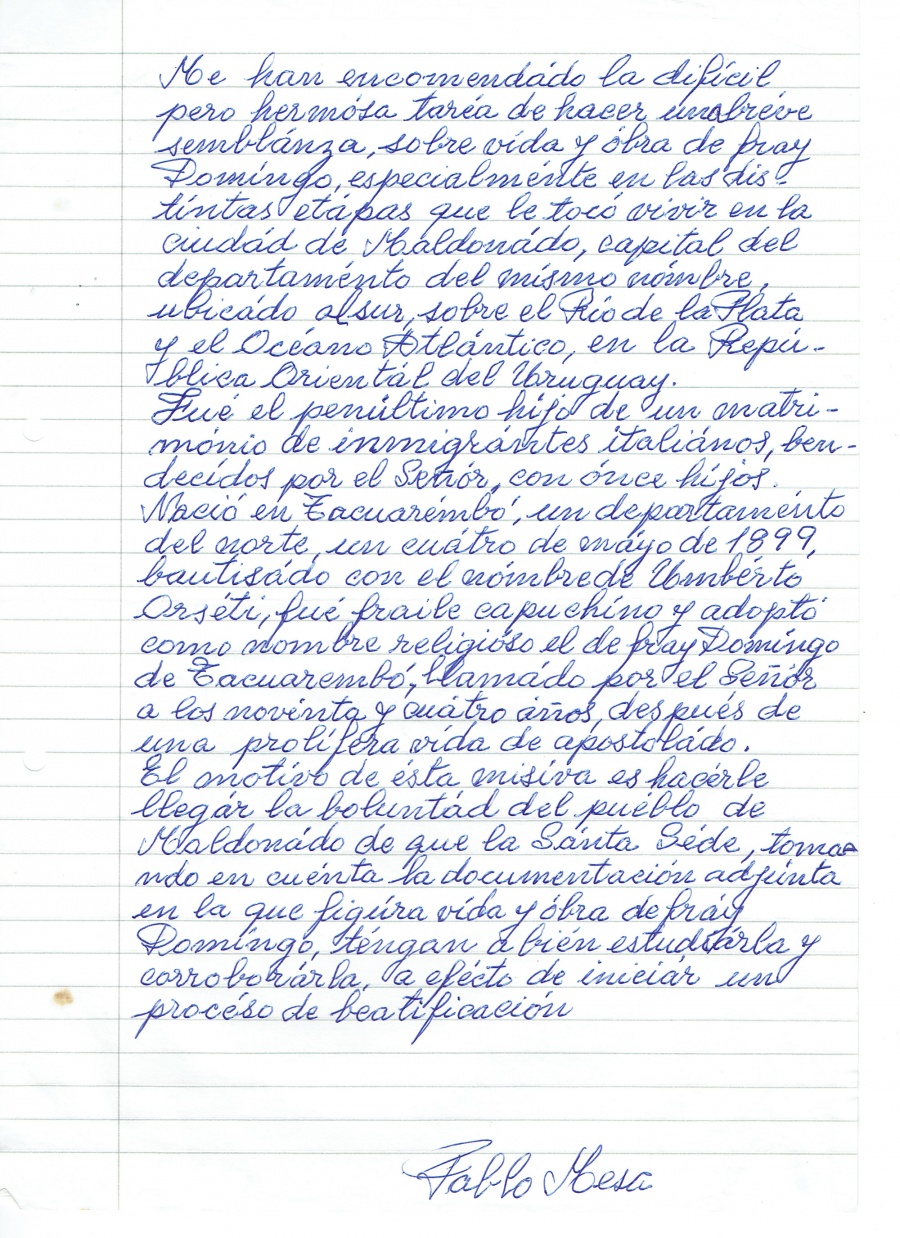 Me han encomendádo la difícil
pero hermósa taréa de hacer una bréve
semblánza, sobre vída y óbra de fray
Domíngo, especialménte en las dis-
tíntas etápas que le tocó vivír en la
ciudád de Maldonádo, capital del
departaménto del mísmo nómbre,
ubicádo al sur, sobre el Río de la Plata
y el Océano Atlántico, en la Repú-
blica Orientál del Uruguay.
Fué el penúltimo híjo de un matri-
mónio de inmigrántes italiános, ben-
decídos por el Señór, con ónce híjos.
Nació en Tacuarembó, un departaménto
del norte, un cuátro de máyo de 1899,
bautisádo con el nómbre de Umbérto
Orséti, fué fraile capuchíno y adoptó
como nombre religióso el de fray Domíngo
de Tacuarembó, llamádo por el Señór
a los novínta y cuátro áños, después de
una prolífera vída de apostoládo.
El motívo de ésta misíva es hacérle
llegár la boluntád del puéblo de
Maldonádo de que la Sánta Séde, toma-
ndo en cuénta la documentación adjúnta
en la que figúra vída y óbra de fráy
Domíngo, téngan a bién estudiárla y
corroborárla, a efécto de iniciár un
procéso de beatificación
Pablo Mesa